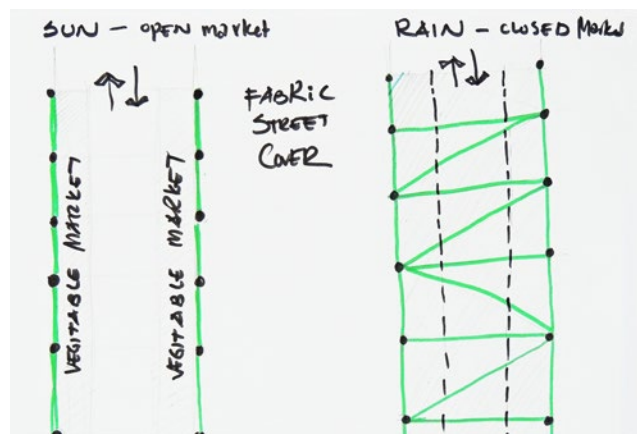 SUN – OPEN market
RAIN – CLOSED Market
FABRIC
STREET
COVER
VEGITABLE MARKET
VEGITABLE MARKET